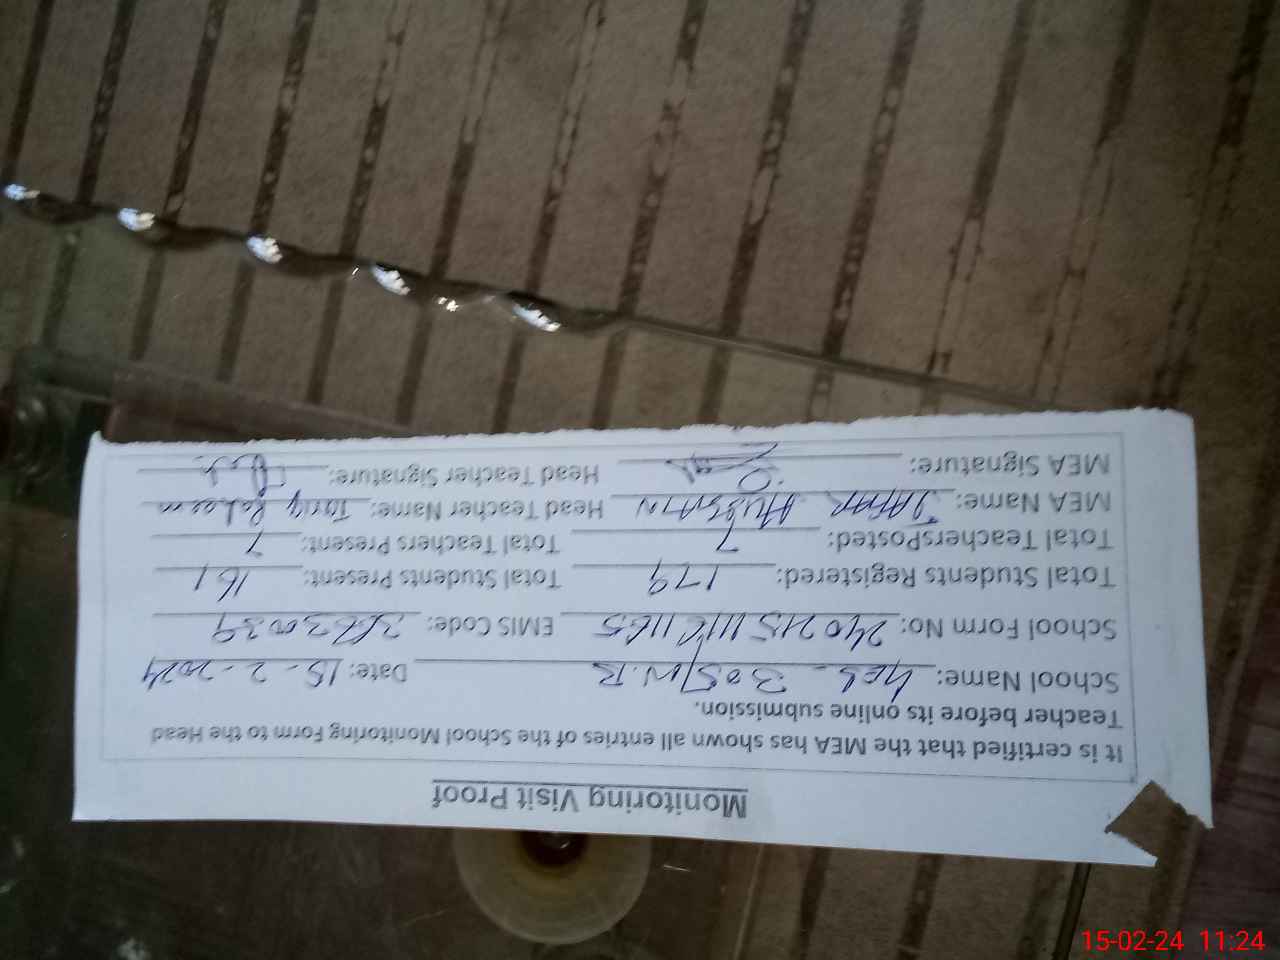 Monitoring Visit Proof
It is certified that the MEA has shown all entries of the School Monitoring Form to the Head
Teacher before its online submission.
School Name: 305/W.B Date: 15-2-2024
School Form No: EMIS Code: 36630039
Total Students Registered: 179 Total Students Present: 161
Total TeachersPosted: 7 Total Teachers Present: 7
MEA Name: JAFAR HUSSAIN Head Teacher Name: Tariq
MEA Signature: Head Teacher Signature:
15-02-24 11:24